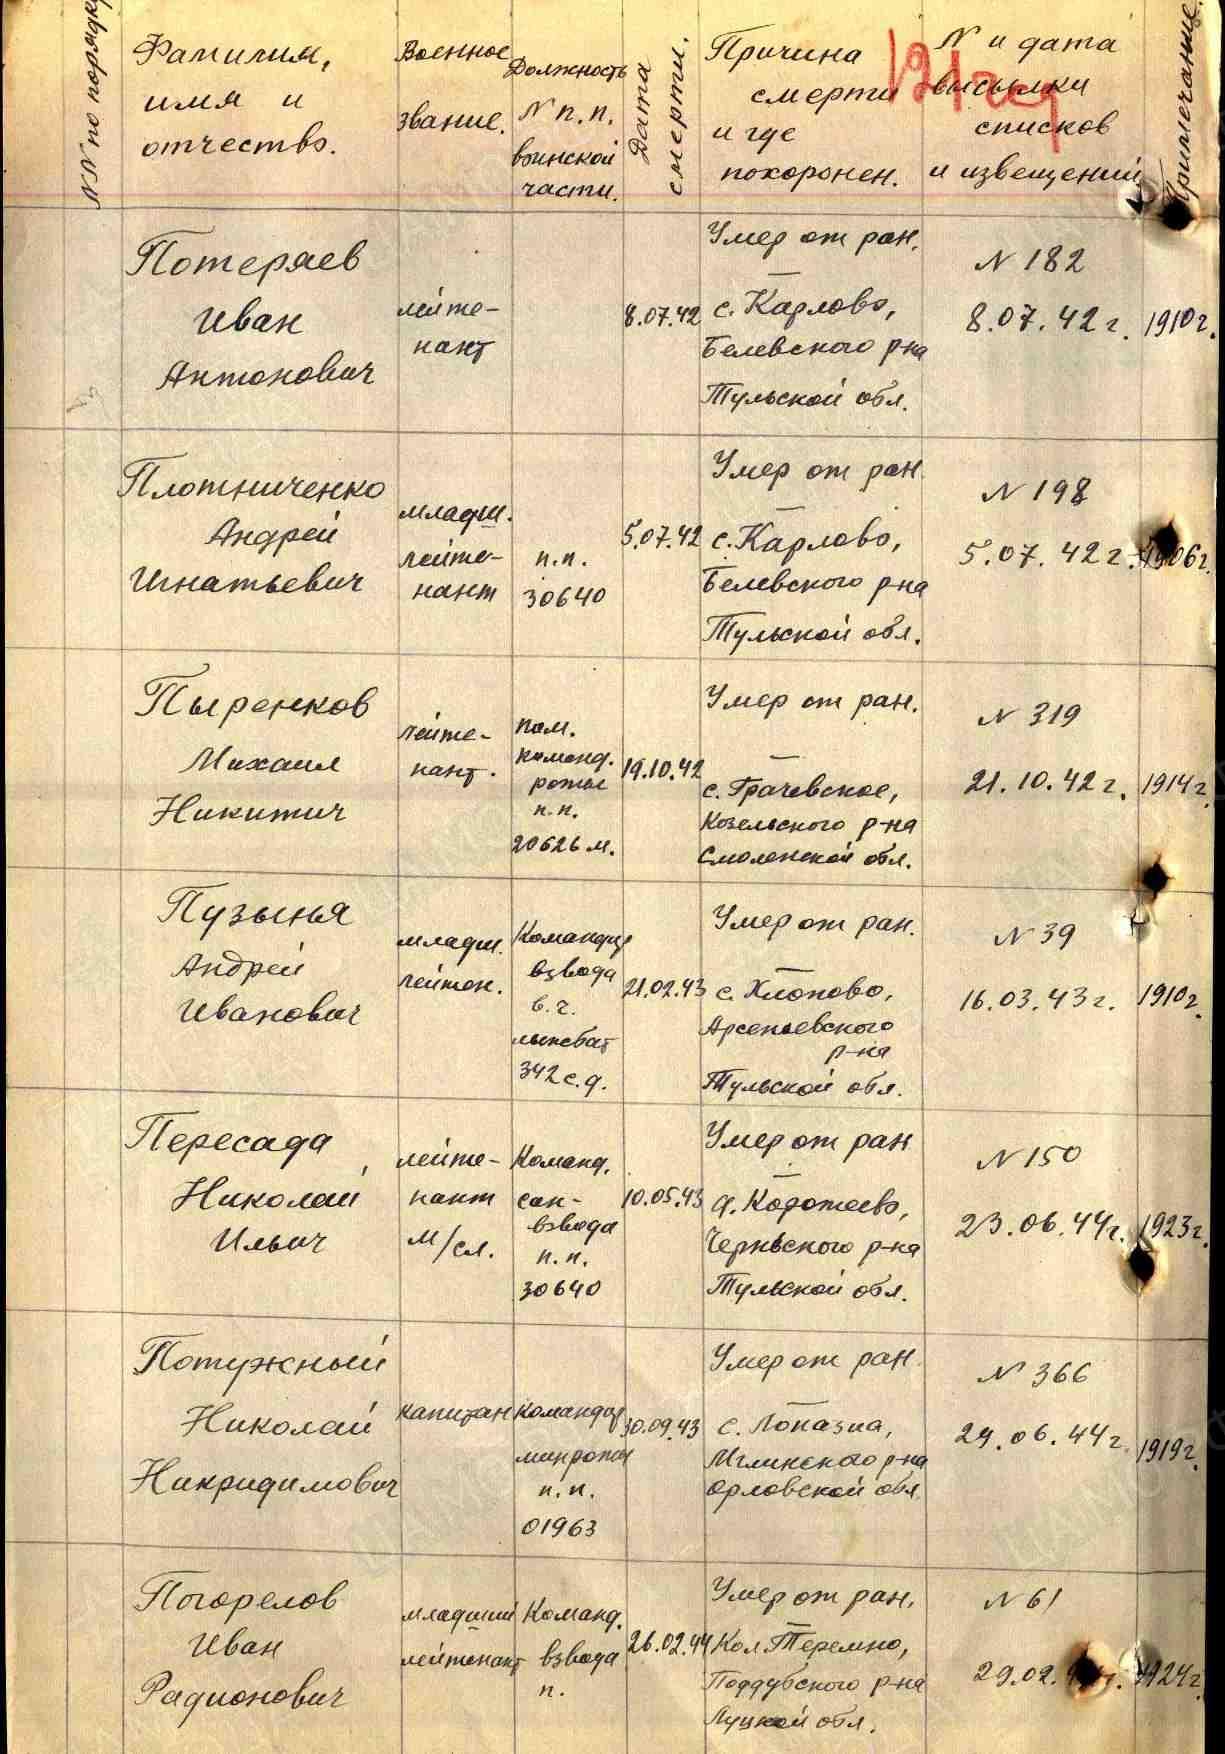 NN по порядку
Фамилия,
имя и
отчество.
Военное
звание.
Должность
N п.п.
воинской
части.
Дата
смерти.
Причина
смерти
и где
похоронен.
N и дата
высылки
списков
и извещений
Примечание.
Потеряев
Иван
Антонович
лейте-
нант
8.07.42
Умер от ран.
с. Карлово,
Белевского р-на
Тульской обл.
N 182
8.07.42 г.
1910 г.
Плотниченко
Андрей
Игнатьевич
младш.
лейте-
нант
п.п.
30640
5.07.42
Умер от ран.
с. Карлово,
Белевского р-на
Тульской обл.
N 198
5.07.42 г.
1906 г.
Пыренков
Михаил
Никитич
лейте-
нант.
пом.
команд.
роты
п.п.
20626 м.
19.10.42
Умер от ран.
с. Грачевское,
Козельского р-на
Смоленской обл.
N 319
21.10.42 г.
1914 г.
Пузынья
Андрей
Иванович
младш.
лейтен.
Командир
взвода
в.ч.
лыжбат
342 с.д.
21.02.43
Умер от ран.
с. Хлопово,
Арсеньевского
р-на
Тульской обл.
N 39
16.03.43 г.
1910 г.
Пересада
Николай
Ильич
лейте-
нант
м/сл.
Команд.
сан-
взвода
п.п.
30640
10.05.43
Умер от ран
Чернского р-на
Тульской обл.
N 150
23.06.44 г.
1923 г.
Потужный
Николай
Никридимович
капитан
командир
минроты
п.п.
01963
30.09.43
Умер от ран.
с. Лопазна,
Мглинского р-на
Орловской обл.
N 366
29.06.44 г.
1919 г.
Погорелов
Иван
Радионович
младший
лейтенант
Команд.
взвода
п.
26.02.44
Умер от ран.
Кол. Теремно,
Поддубского р-на
Луцкой обл.
N 61
29.02.
1924 г.